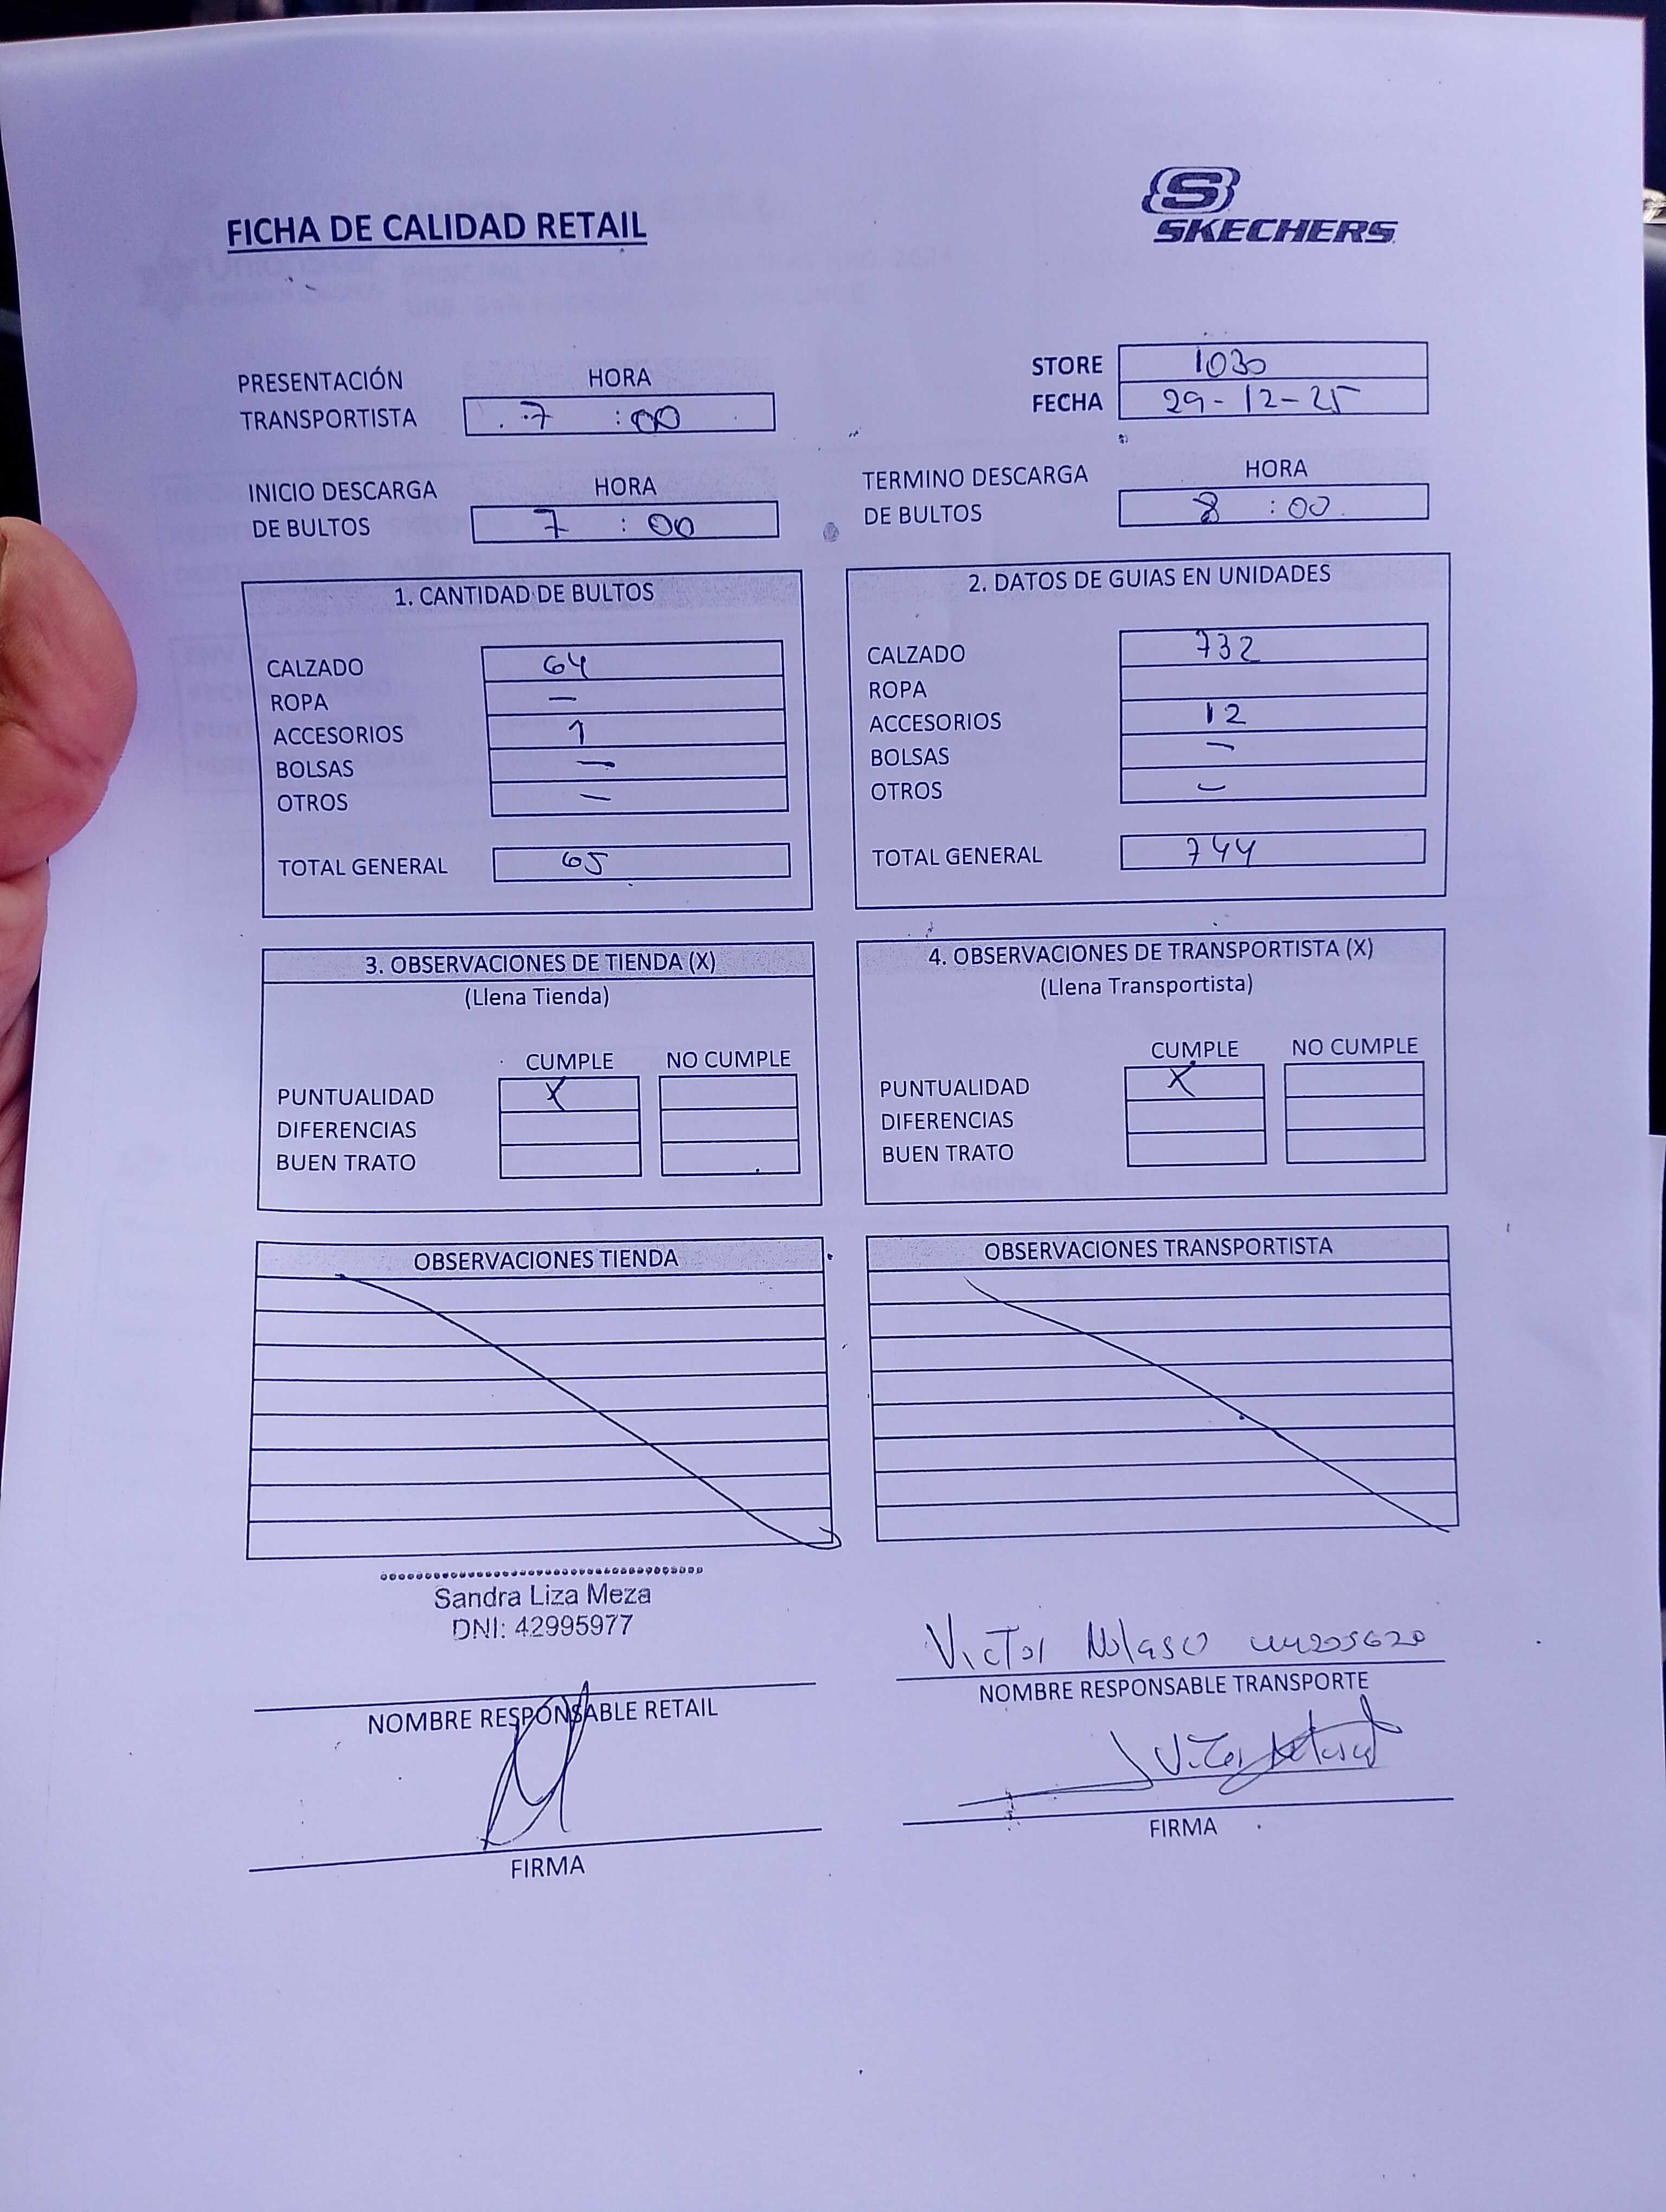 FICHA DE CALIDAD RETAIL
S
SKECHERS
STORE 1030
FECHA 29-12-25
PRESENTACIÓN HORA
TRANSPORTISTA 7 :00
INICIO DESCARGA HORA
DE BULTOS 7 : 00
TERMINO DESCARGA HORA
DE BULTOS 8 :00
1. CANTIDAD DE BULTOS
CALZADO 64
ROPA —
ACCESORIOS 1
BOLSAS —
OTROS —
TOTAL GENERAL 65
2. DATOS DE GUIAS EN UNIDADES
CALZADO 732
ROPA
ACCESORIOS 12
BOLSAS —
OTROS —
TOTAL GENERAL 744
3. OBSERVACIONES DE TIENDA (X)
(Llena Tienda)
CUMPLE NO CUMPLE
PUNTUALIDAD X
DIFERENCIAS
BUEN TRATO
4. OBSERVACIONES DE TRANSPORTISTA (X)
(Llena Transportista)
CUMPLE NO CUMPLE
PUNTUALIDAD X
DIFERENCIAS
BUEN TRATO
OBSERVACIONES TIENDA
OBSERVACIONES TRANSPORTISTA
Sandra Liza Meza
DNI: 42995977
NOMBRE RESPONSABLE RETAIL
FIRMA
Victor Nolasco 44205620
NOMBRE RESPONSABLE TRANSPORTE
FIRMA